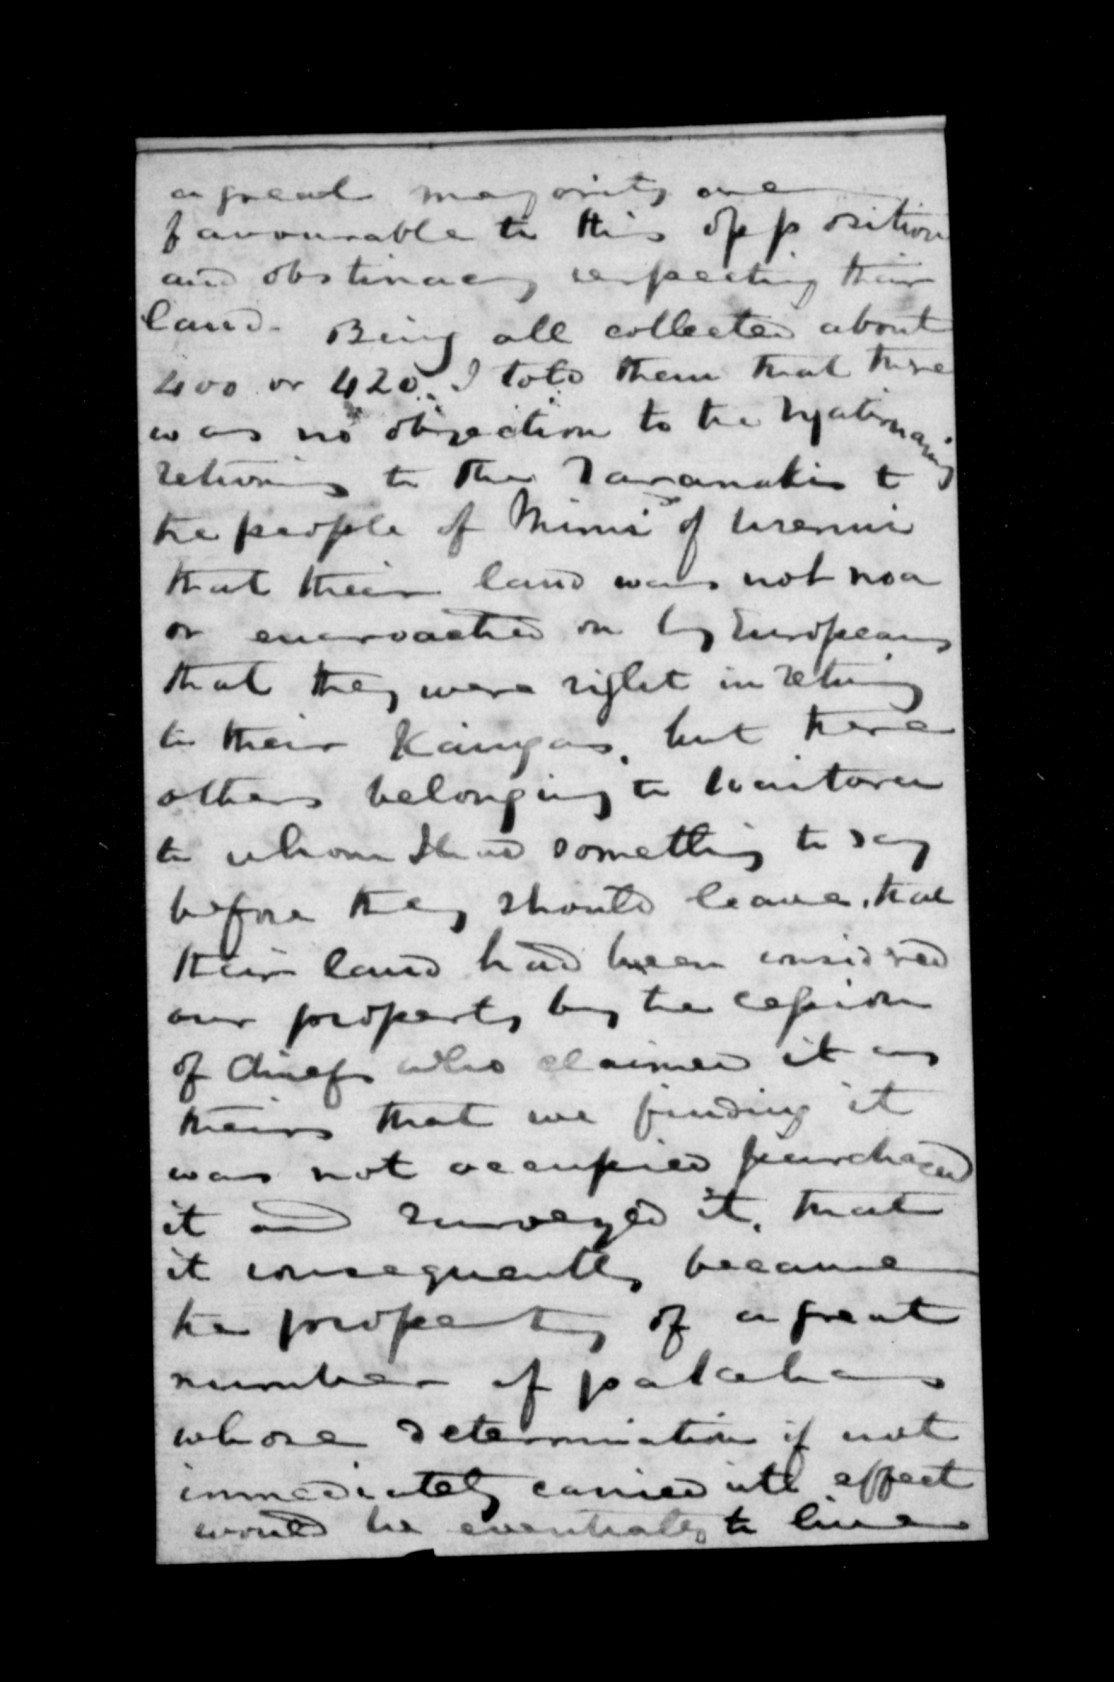 a great majority are
favourable to this opposition
and obstinacy respecting their
land. Being all collected about
400 or 420. I told them that there
was no objection to the Ngationaing
returning to the Taranakis to
the people of Mimi of Urenui
that their land was not noa
or encroached on by Europeans
that they were right in returning
to their Kaingas, but there
others belonging to Waitara
to whom I had something to say
before they should leave, that
their land had been considered
our property by the cession
of chiefs who claimed it as
theirs that we finding it
was not occupied purchased
it and surveyed it, that
it consequently became
the property of a great
number of pakehas
whose determination if not
immediately carried into effect
would be eventually to live